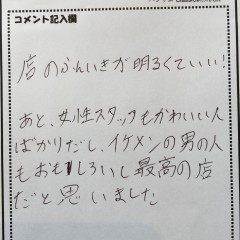 コメント記入欄
店のふんいきが明るくていい!
あと、女性スタッフもかわいい人
ばかりだし、イケメンの男の人
もおもしろいし最高の店
だと思いました